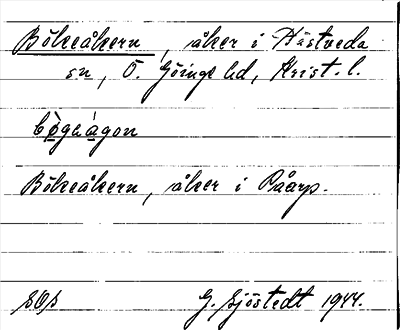 Bökeåkern, åker i Hästveda
sn, Ö. Göinge hd, Krist. l.
Bökeåkern, åker i Påarp.
G. Sjöstedt 1944.